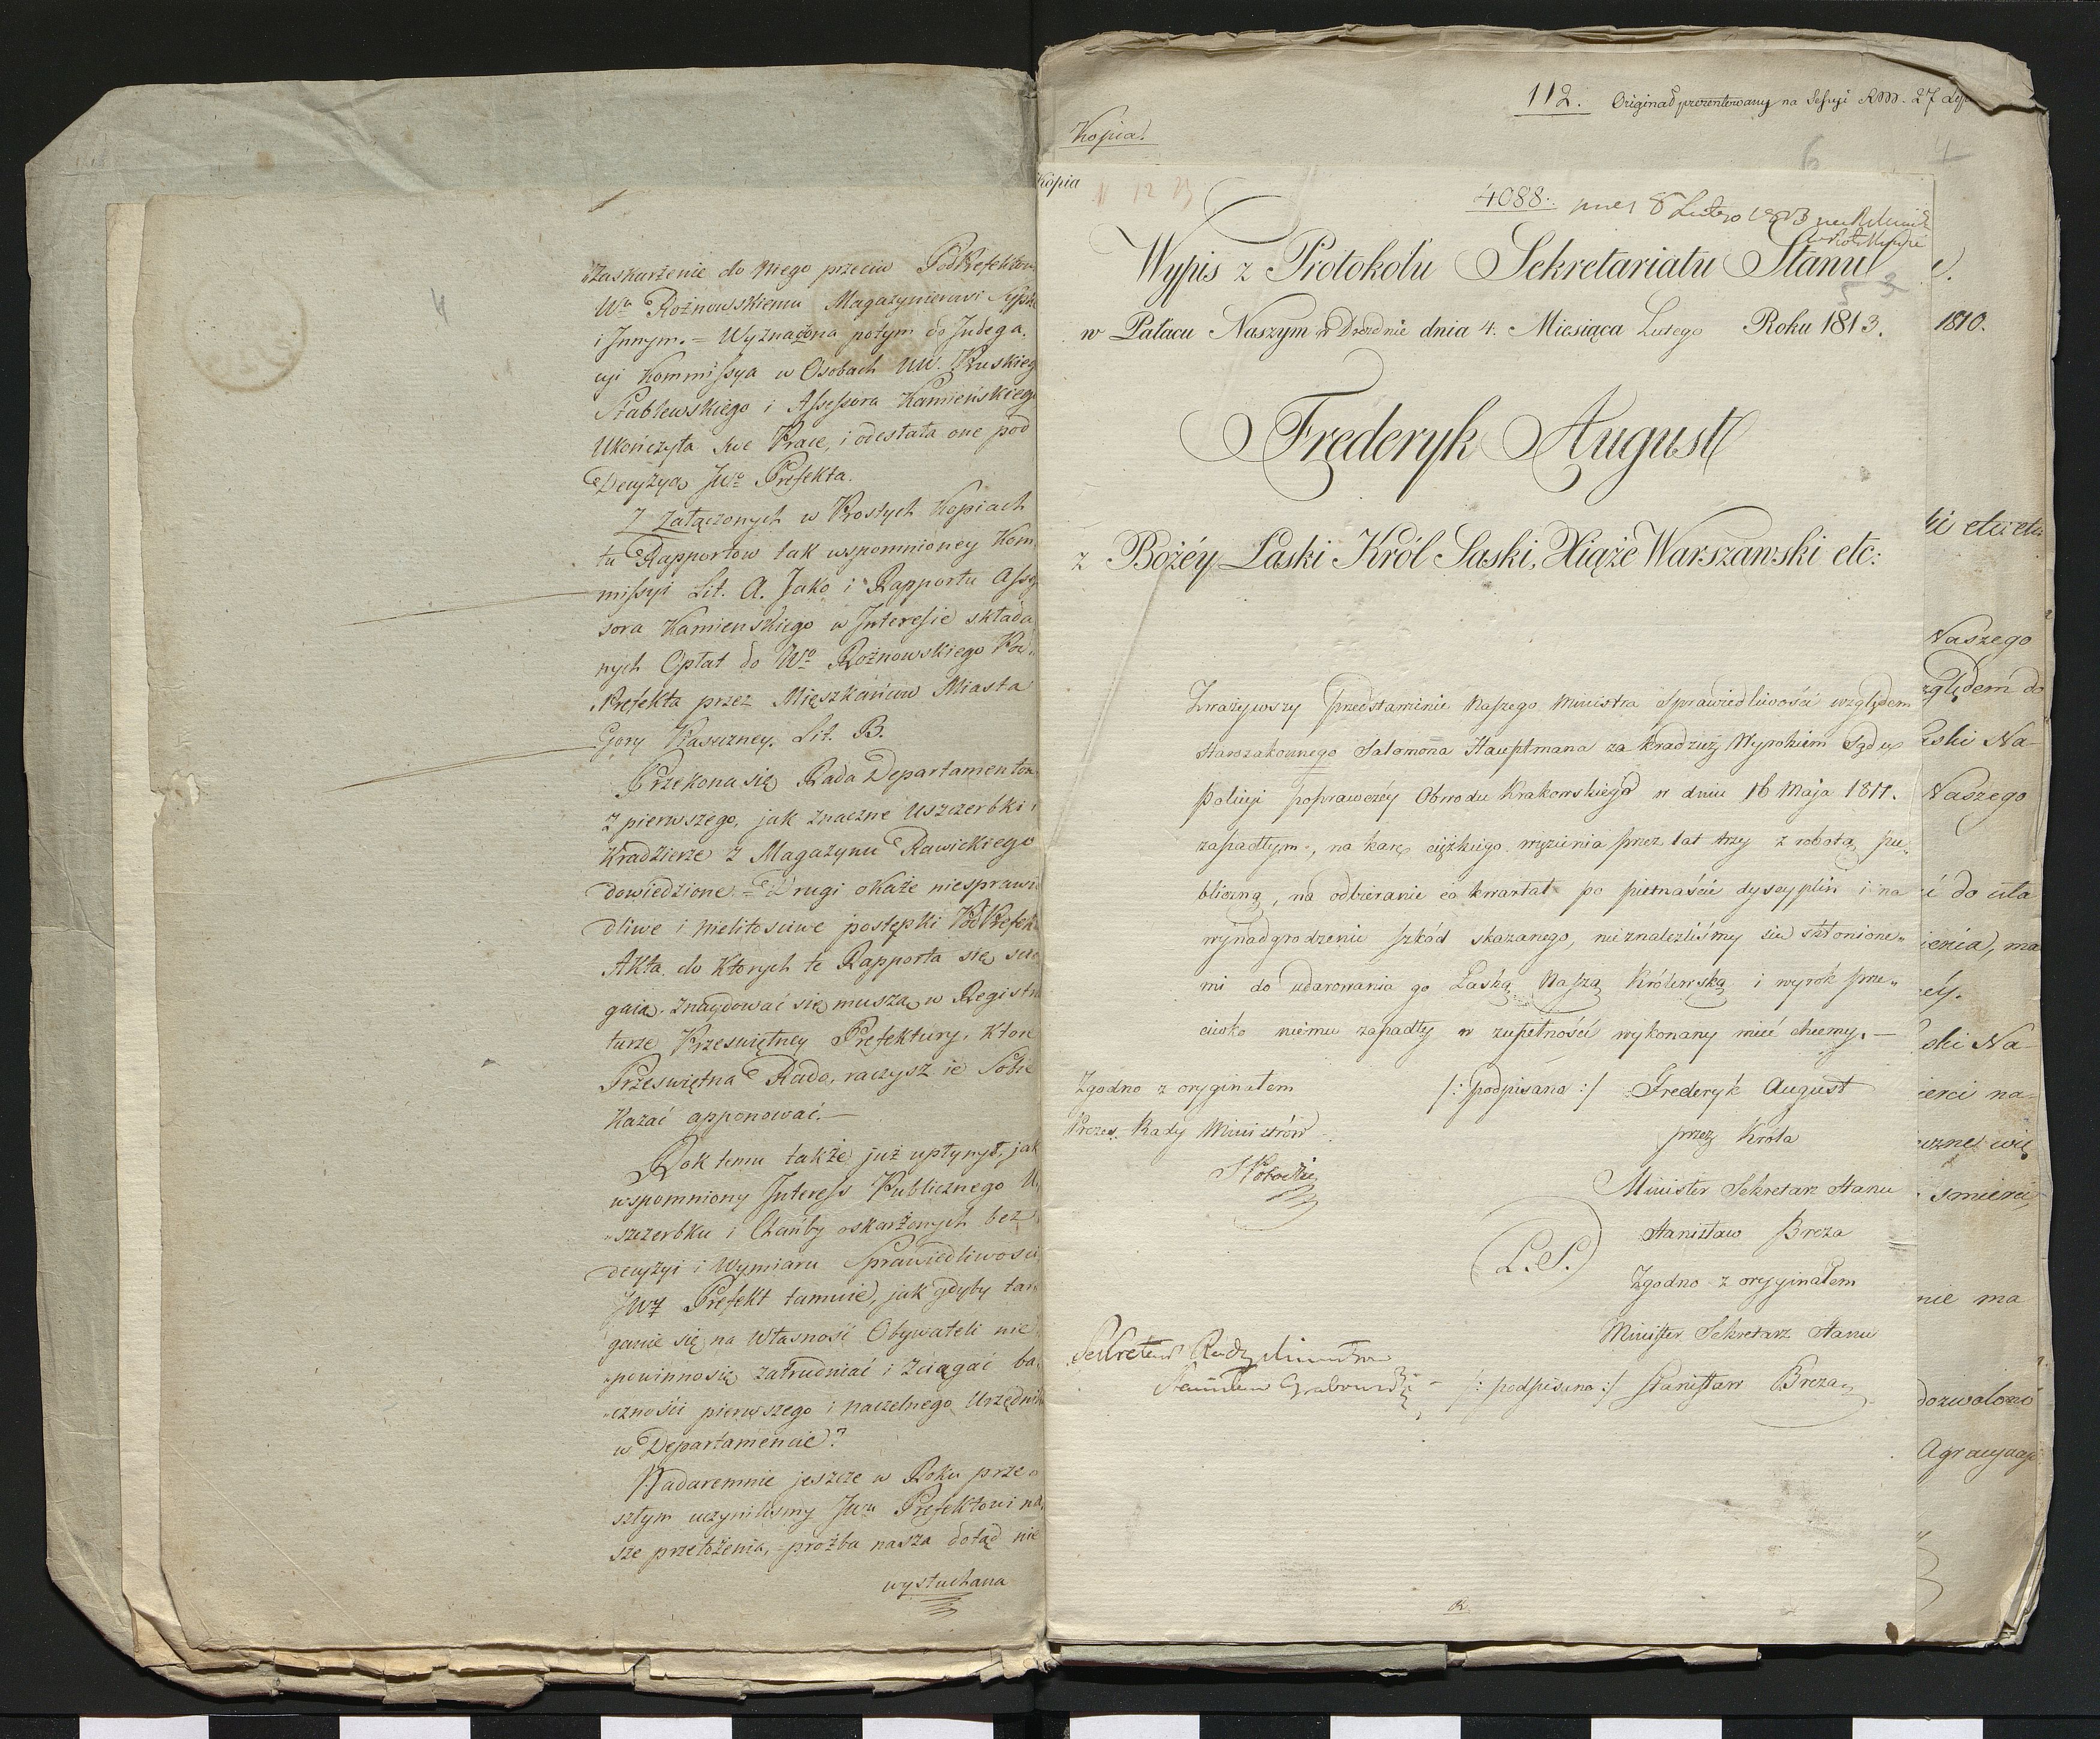 4
Zaskarżenie do niego przeciw PodPrefektow
Wu Rożnowskiemu Magazynierowi
i Innym. = Wyznaczona potym do Indega,
cyi Kommissya w Osobach UW. Pruskieg
Stablewskiego i Assessora Kamieńskiego
Ukończyła swe Prace, i odesłała one pod
Decyzyą JWo Prefekta.
Z załączonych w Prostych Kopiach
tu Rapportow tak wspomnioney Kom
missyi Lit. A. Jako i Rapportu Asses
sora Kamienskiego w Interesie składa
nych Opłat do Wo Rożnowskiego Pod
Prefekta przez Mięszkańców Miasta
Gory Lit. B.
Przekona się Rada Departamentow
z pierwszego, jak znaczne Uszczerbki i
Kradzieże z Magazynu Rawickiego
dowiedzione = Drugi okaże niesprawie
dliwe i nielitosciwe postępki PodPrefek
Akta do Ktorych te Rapporta się scia
gaią, znaydować się muszą w Registra
turze Przeswiętney Prefektury, Ktore
Przeswiętna Rado, raczysz ie Sobie
Kazać apponować. —
Rok temu także już upłynął, jak
wspomniony Interess Publicznego U,
„szczerbku i Chańby oskarżonych bez
decyzyi i Wymiaru Sprawiedliwosci
JWJ Prefekt tamuie, jak gdyby tar
ganie się na Własność Obywateli nie
„powinno się zatrudniać i Zciągać ba,
„czności pierwszego i naczelnego Urzędnika
w Departamencie?
Nadaremnie jeszcze w Roku prze„
szłym uczynilismy JWu Prefektowi na
sze przełożenia, prożba nasza dotąd nie
wysłuchana
112. Originał prezentowany na Sessyi RM. 27
Kopia.
6 4
Kopia
11 12 23
4088. 8 Lutego 1813
Wypis z Protokołu Sekretariatu Stanu
5 3
w Pałacu Naszym w Dreznie dnia 4. Miesiąca Lutego Roku 1813.
1810.
Frederyk August
z Bożéy Łaski Król Saski, Xiąże Warszawski etc:
ki etc etc
Zważywszy Przedstawienie Naszego Ministra Sprawiedliwości względem
starozakonnego Salomona Hauptmana za kradzież Wyrokiem Sądu
Policyi poprawczéy Obwodu Krakowskiego w dniu 16 Maja 1811.
zapadłym, na karę ciężkiego więzienia przez lat trzy z robotą pu„
bliczną, na odbieranie co kwartał po piętnaście dyscyplin i na
wynadgrodzenie szkód skazanego, nieznaleźliśmy się skłonione„
mi do udarowania go Łaską Naszą Królewską i wyrok prze„
ciwko niemu zapadły w zupełności wykonany mieć chcemy. —
Naszego
względem do
Łaski Na
Naszego
ć do ula
ienia, ma
ski Na
nie ma
śmierci,
dozwolono
Zgodno z oryginałem
Prezes Rady Ministrów
/: podpisano :/ Frederyk August
przez Króla
Minister Sekretarz Stanu
Stanisław Breza
L.S.
Zgodno z oryginałem
Minister Sekretarz Stanu
/: podpisano :/ Stanisław Breza
Sekretarz Rady Ministrów
Stanisław Grabowski